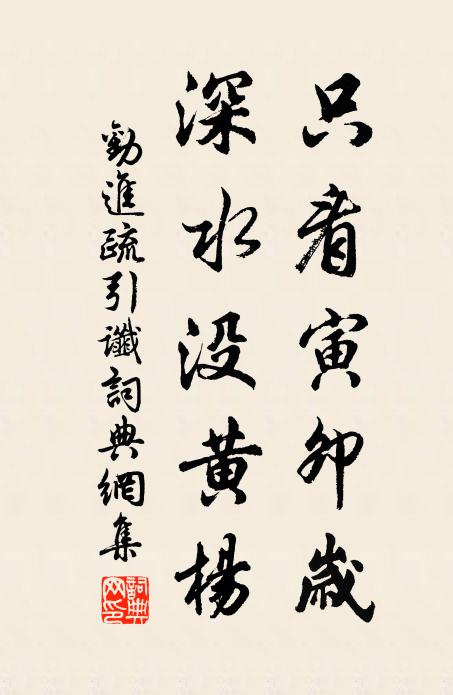 只看寅卯歲
深水没黄楊
勸進疏引讖詞典網集
詞典网印